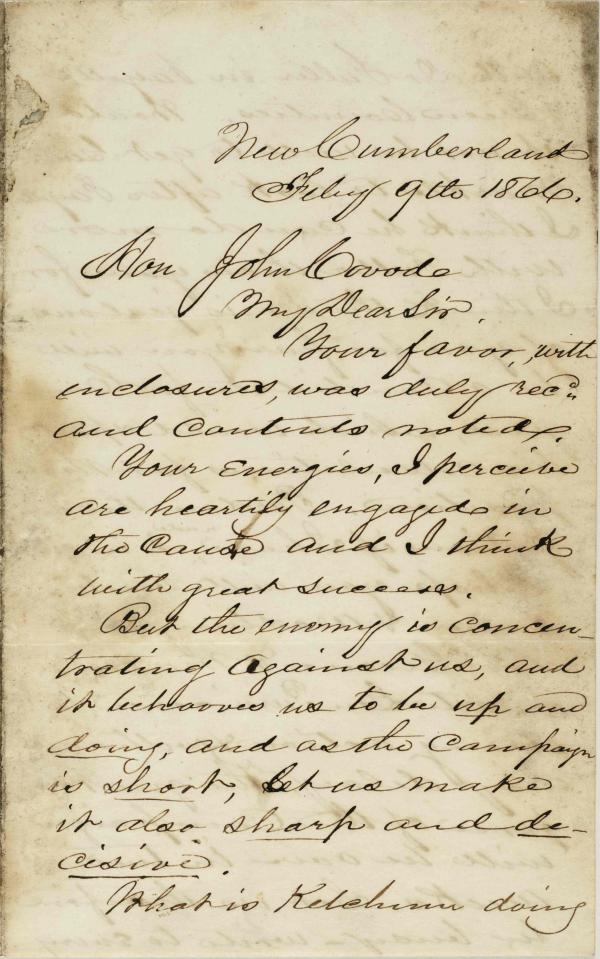 New Cumberland
Feby 9th 1866.
Hon John Covode
My Dear Sir.
Your favor, with
enclosures, was duly recd
and contents noted.
Your energies, I perceive
are heartily engaged in
the cause and I think
with great success.
But the enemy is concen-
trating against us, and
it behooves us to be up and
doing, and as the campaign
is short, let us make
it also sharp and de-
cisive.
What is Ketchum doing